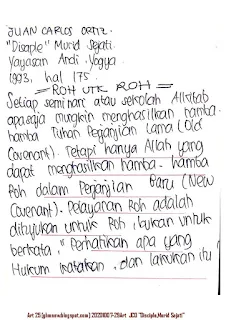 JUAN CARLOS ORTIZ.
"Disaple" Murid Sejati.
Yayasan Andi. Yogya
1993, hal 175.
= ROH UTK ROH =
Setiap seminar atau sekolah Alkitab
apa saja mungkin menghasilkan hamba-
hamba Tuhan Perjanjian Lama (Old
Covenant). Tetapi hanya Allah yang
dapat menghasilkan hamba-hamba
Roh dalam Perjanjian Baru (New
Covenant). Pelayanan Roh adalah
ditujukan untuk Roh, bukan untuk
berkata, "Perhatikan apa yang
Hukum katakan, dan lakukan itu!
Art 25|(ghmsnow.blogspot.com)